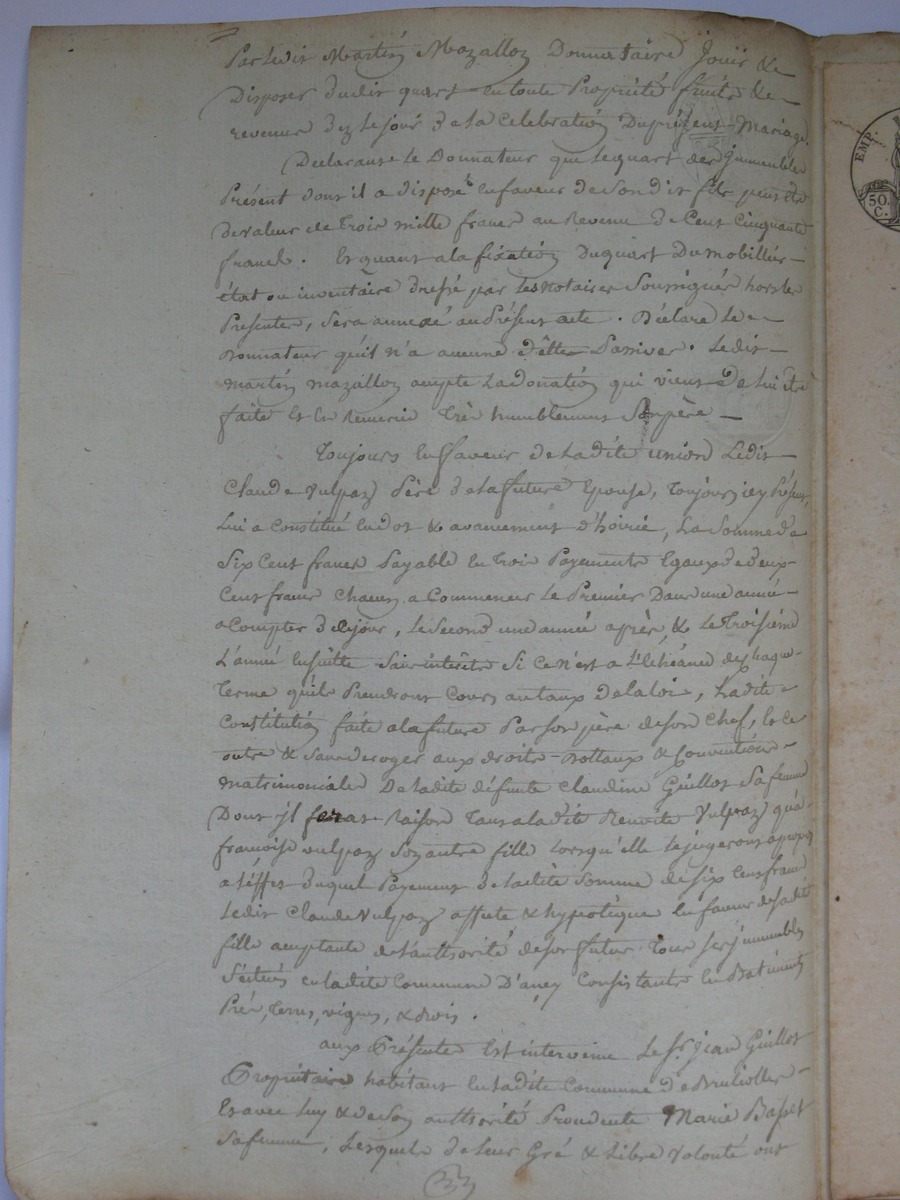 Par Ledit Martin Mazallon Donnataire Jouir &
Disposer dudit quart en toute Propriété fruits &
revenus dez le jour de la Celebration Du présent Mariage.
Declarant Le Donnateur que le quart des jmmeubles
Présent dont il a disposé en faveur de son dit fils peut être
de valeur de Trois mille francs au Revenu de Cent Cinquante
francs. Et quant a la fixation Du quart Du mobillier
état ou inventaire dressé par les notaires Soussignés hors les
Presentes, sera annexé au Présent acte. Déclare Le
Donnateur qu'il n'a aucune dêtte Passives. Ledit
martin mazallon accepte La donation qui vient de lui être
faite et en Remercie Très humblement Son père
Toujours en faveur de Ladite union Ledit
Claude Vulpaz Père de la future Epouse, Toujours icy Présent,
Lui a Constitué en dot & avancement d'hoirie, La Somme de
Six Cent francs Payable en Trois Payements Egaux de deux
Cent francs Chacun a Commencer Le Premier Dans une année
a Compter de ce jour, le Second une année après, & Le Troisième
L'année ensuitte Sans interêts Si ce n'est a L'echéance de chaque
Terme qu'ils Prendront Cours au taux de la loi, Ladite
Constitution faite a la future Par son père de son Chef, et ce
outre & sans deroger aux droits dottaux & Conventions
matrimoniales De ladite défunte Claudine Guillot Sa femme
Dont jl feras Raison Tant a ladite Benoite Vulpaz qu'a
françoise vulpaz Son autre fille Lorsqu'elle Le jugeront apropos
a L'éffet duquel Payement de Ladite Somme de six Cent francs
Ledit Claude Vulpaz affecte & hypotèque En faveur de sa dite
fille acceptante de L'authorité de son futur Tous ses jmmeubles
Scitués en Ladite Commune D'ancy Consistants en Batiments
Prés, Terres, vignes, & bois.
aux Présentes Est intervenu Le Sr. jean Guillot
Propriétaire habitant en Ladite Commune de Brullioles
Et avec Luy & de Son authorité Procedente Marie Basset
Sa femme, Lesquels de Leur Gré & Libre volonté ont
EMP.
50.
C.